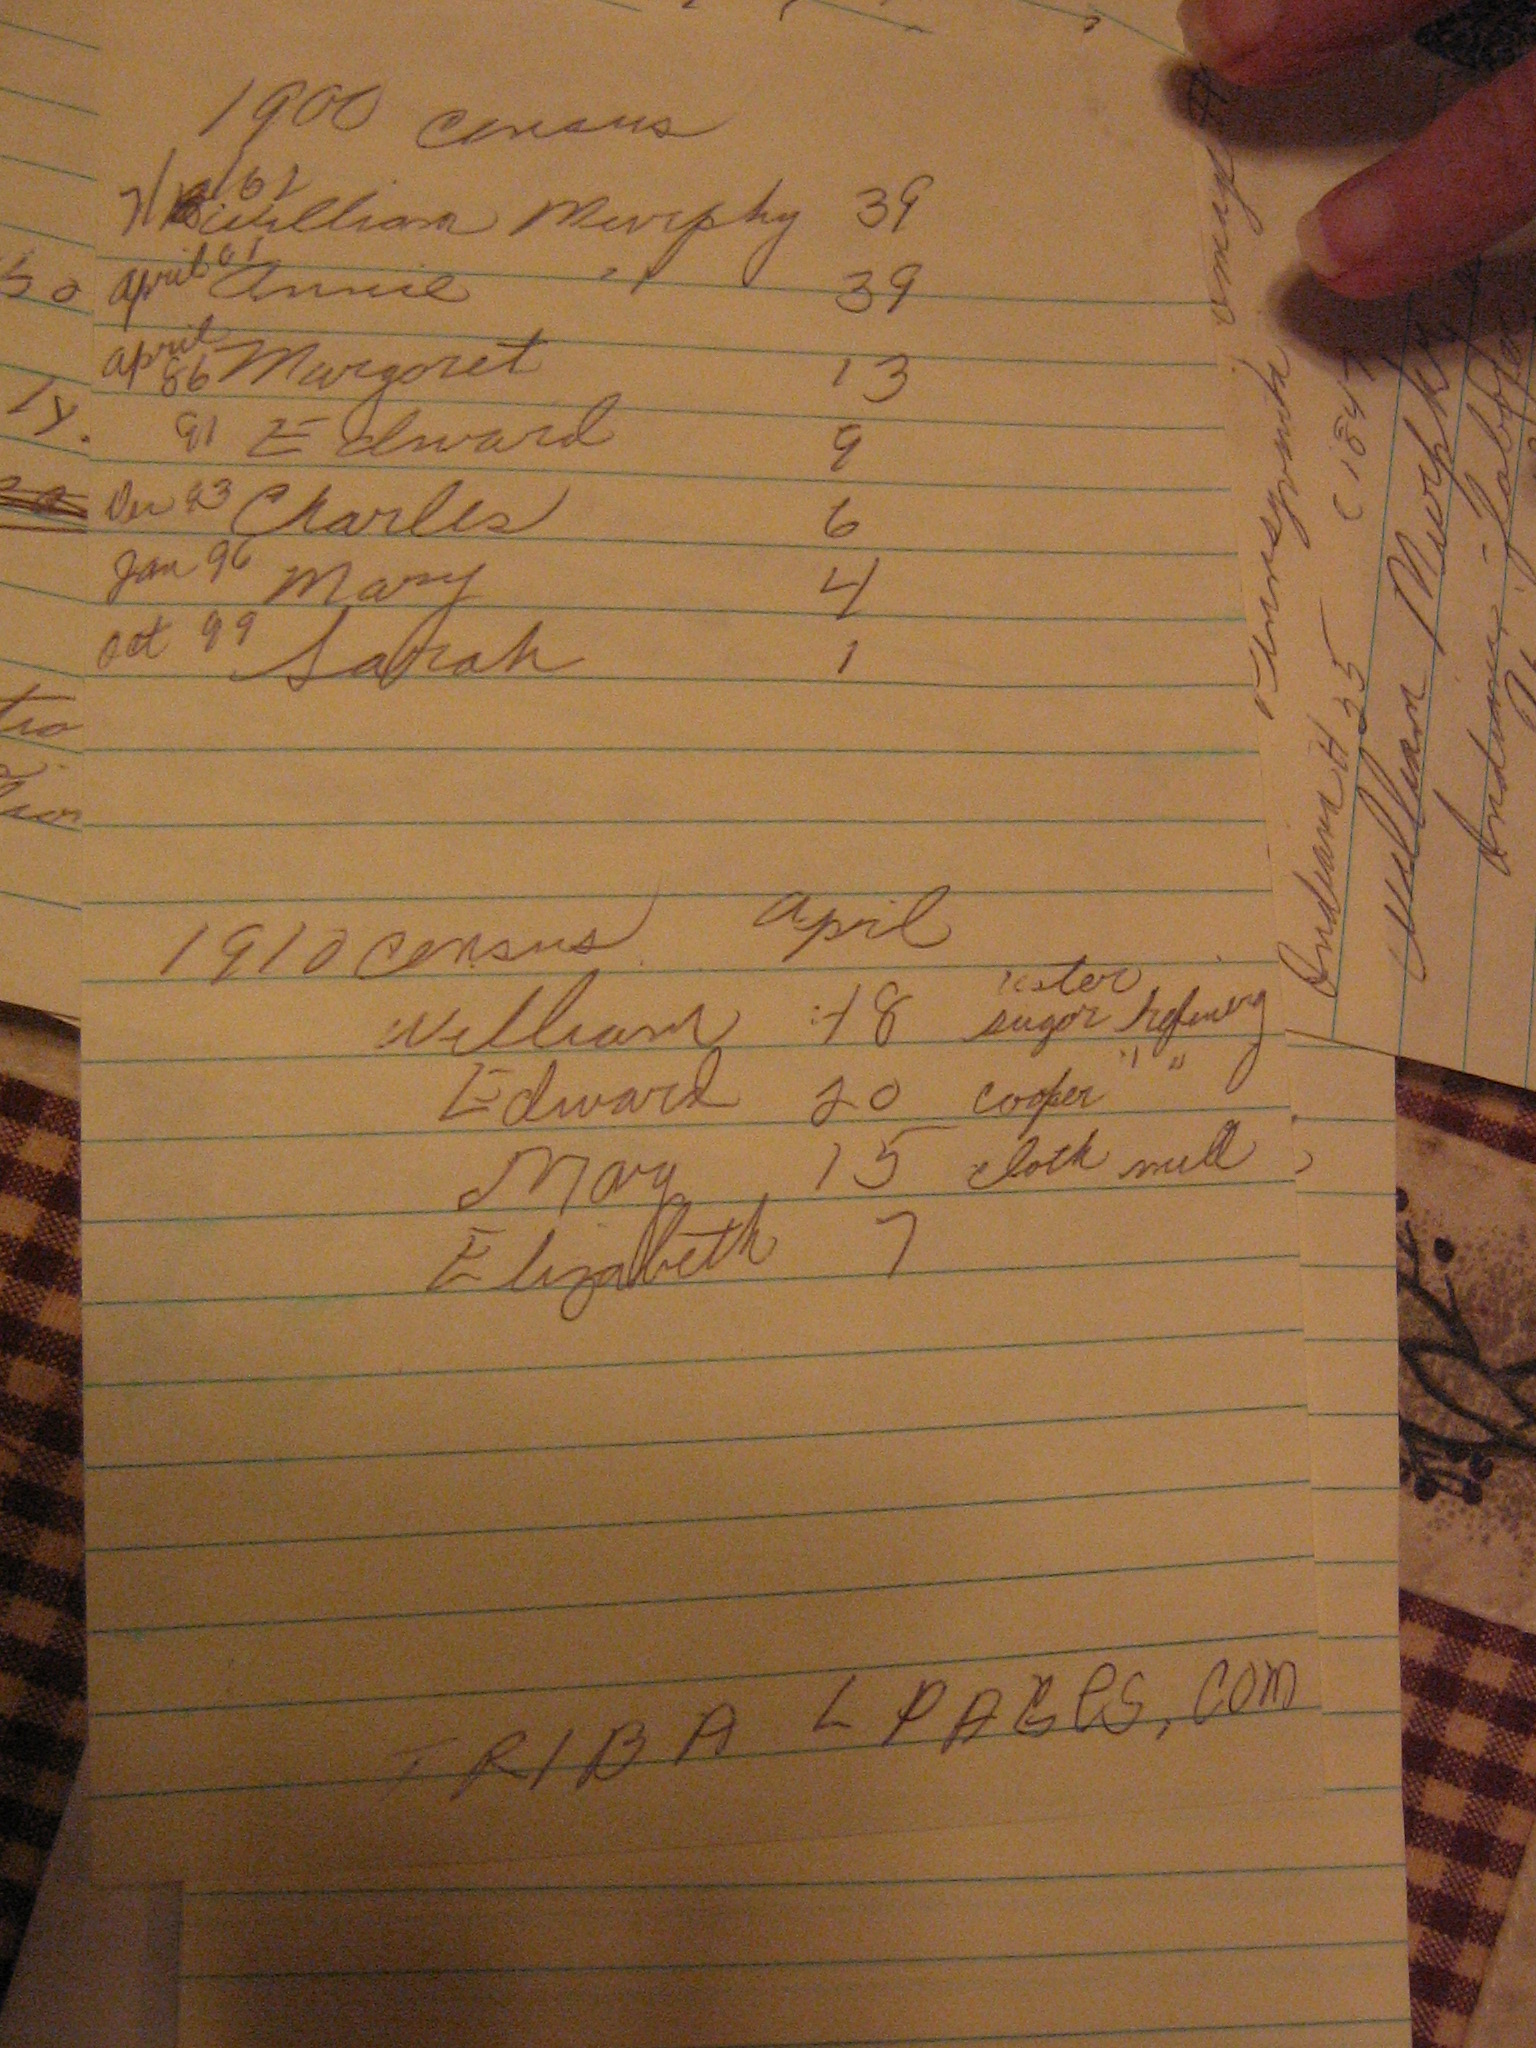 1900 census
61
William Murphy 39
April 61 Annie " 39
April 86 Margoret 13
91 Edward 9
Dec 93 Charles 6
Jan 96 Mary 4
Oct 99 Sarah 1
1910 census April
William 48 sugar refinery
Edward 20 cooper " "
Mary 15 cloth mill
Elizabeth 7
TRIBALPAGES.COM
Pennsylvania
Indiana H 35
William Murphy